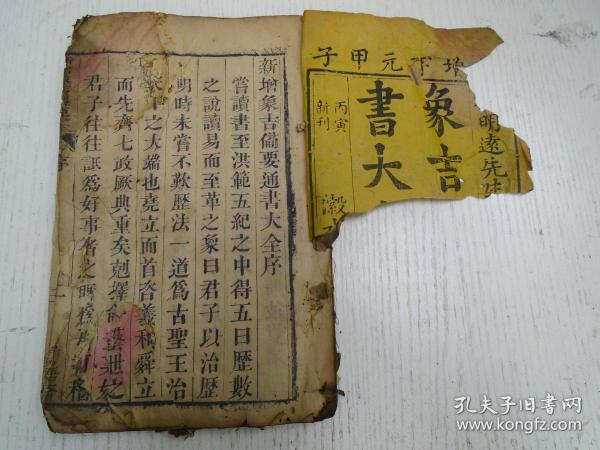 增下元甲子
明遠先生
象吉
書大
丙寅
新刊
瀫水
新增象吉備要通書大全序
嘗讀書至洪範五紀之中得五曰歷數
之說讀易而至革之象曰君子以治歷
明時未嘗不歎歷法一道為古聖王治
天下之大端也堯立而首咨羲和舜立
而先齊七政厥典重矣剋擇
君子往往詆為好事者之
孔夫子旧书网
www.kongfz.com